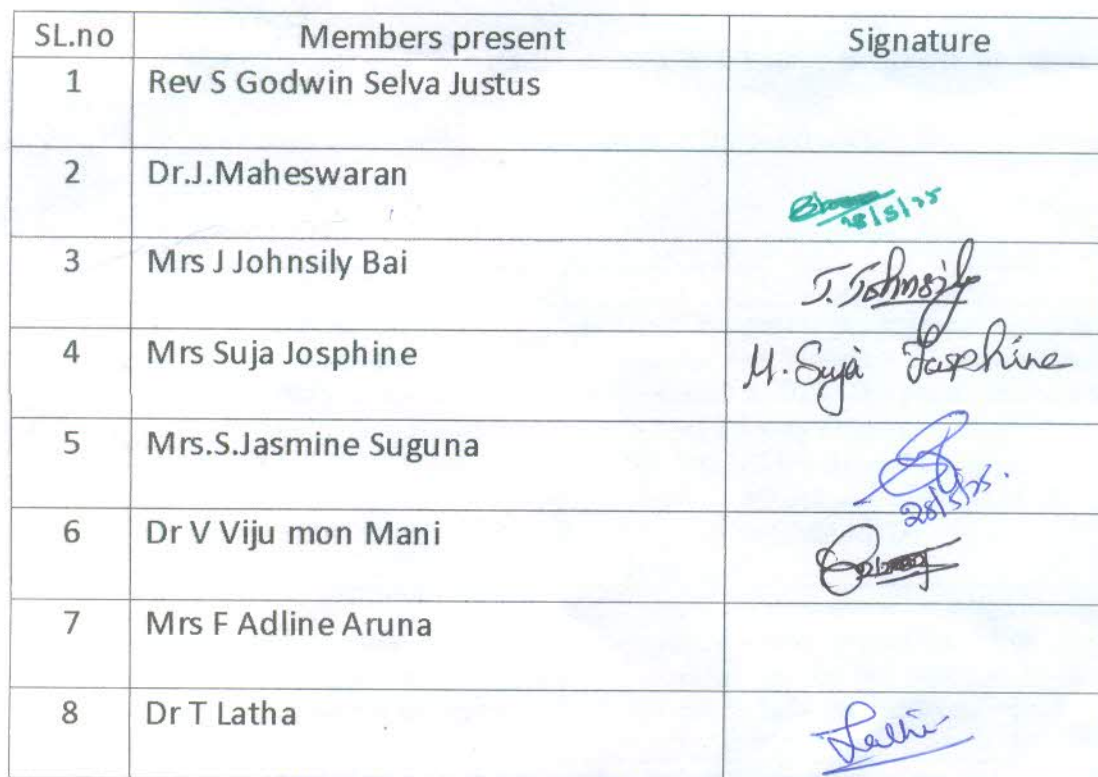 SL.no Members present Signature
1 Rev S Godwin Selva Justus
2 Dr.J.Maheswaran
28/5/25
3 Mrs J Johnsily Bai J. Johnsily
4 Mrs Suja Josphine M. Suja Josphine
5 Mrs.S.Jasmine Suguna
28/5/25.
6 Dr V Viju mon Mani
7 Mrs F Adline Aruna
8 Dr T Latha Latha